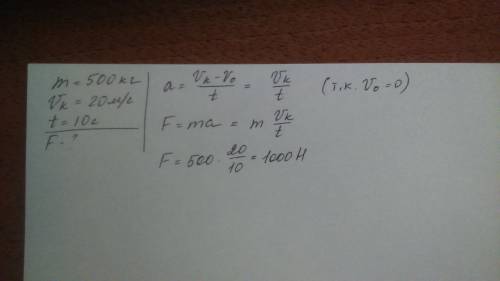 m = 500 кг
Vк = 20 м/с
t = 10 с
F - ?
a = (Vк - V₀)/t = Vк/t (т.к. V₀ = 0)
F = ma = m Vк/t
F = 500 · 20/10 = 1000 Н